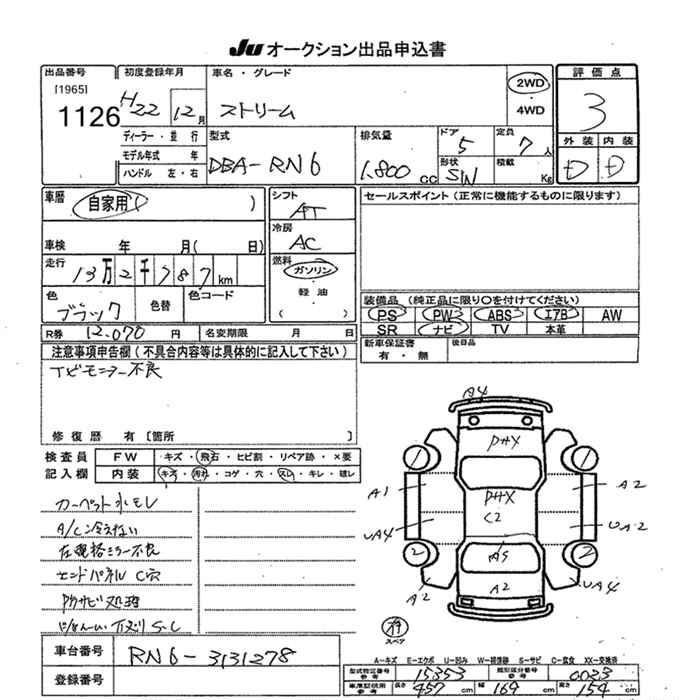 JU オークション出品申込書
出品番号
[1965]
1126
初度登録年月
H22 12月
車名・グレード
ストリーム
2WD
・
4WD
評価点
3
外装 内装
D D
ディーラー・並行
モデル年式 年
ハンドル 左・右
型式
DBA-RN6
排気量
1,800 cc
ドア
5
定員
7人
形状
S/W
積載
Kg
車歴
自家用( )
車検 年 月( 日)
走行
13万2千787km
色
ブラック
色替
色コード
シフト
AT
冷房
AC
燃料
ガソリン
・
軽油
( )
セールスポイント(正常に機能するものに限ります)
装備品(純正品に限り○を付けてください)
PS PW ABS エアB AW
SR ナビ TV 本革
新車保証書
有・無
後日品
R券 12,070円
名変期限 月 日
注意事項申告欄(不具合内容等は具体的に記入して下さい)
TVモニラー不良
修復歴 有 [箇所 ]
検査員
記入欄
FW ・キズ・飛石・ヒビ割・リペア跡・×要
内装 ・キズ・汚れ・コゲ・穴・スレ・キレ・破レ
カーペット水モレ
A/C冷えない
エンドパネルC穴
防サビ処理
S・C
車台番号 RN6-3131278
登録番号
A4
PHX
1
1
A1
A2
PHX
C2
UA4
UA2
2
2
A5
A2
A2
UA4
スペア
A-キズ E-エクボ U-凹み W-補修跡 S-サビ C-腐食 XX-交換済
型式指定番号
参考
15853
類別区分番号
参考
0023
車庫証明用
参考
長さ 457cm 幅 169cm 高さ 154cm